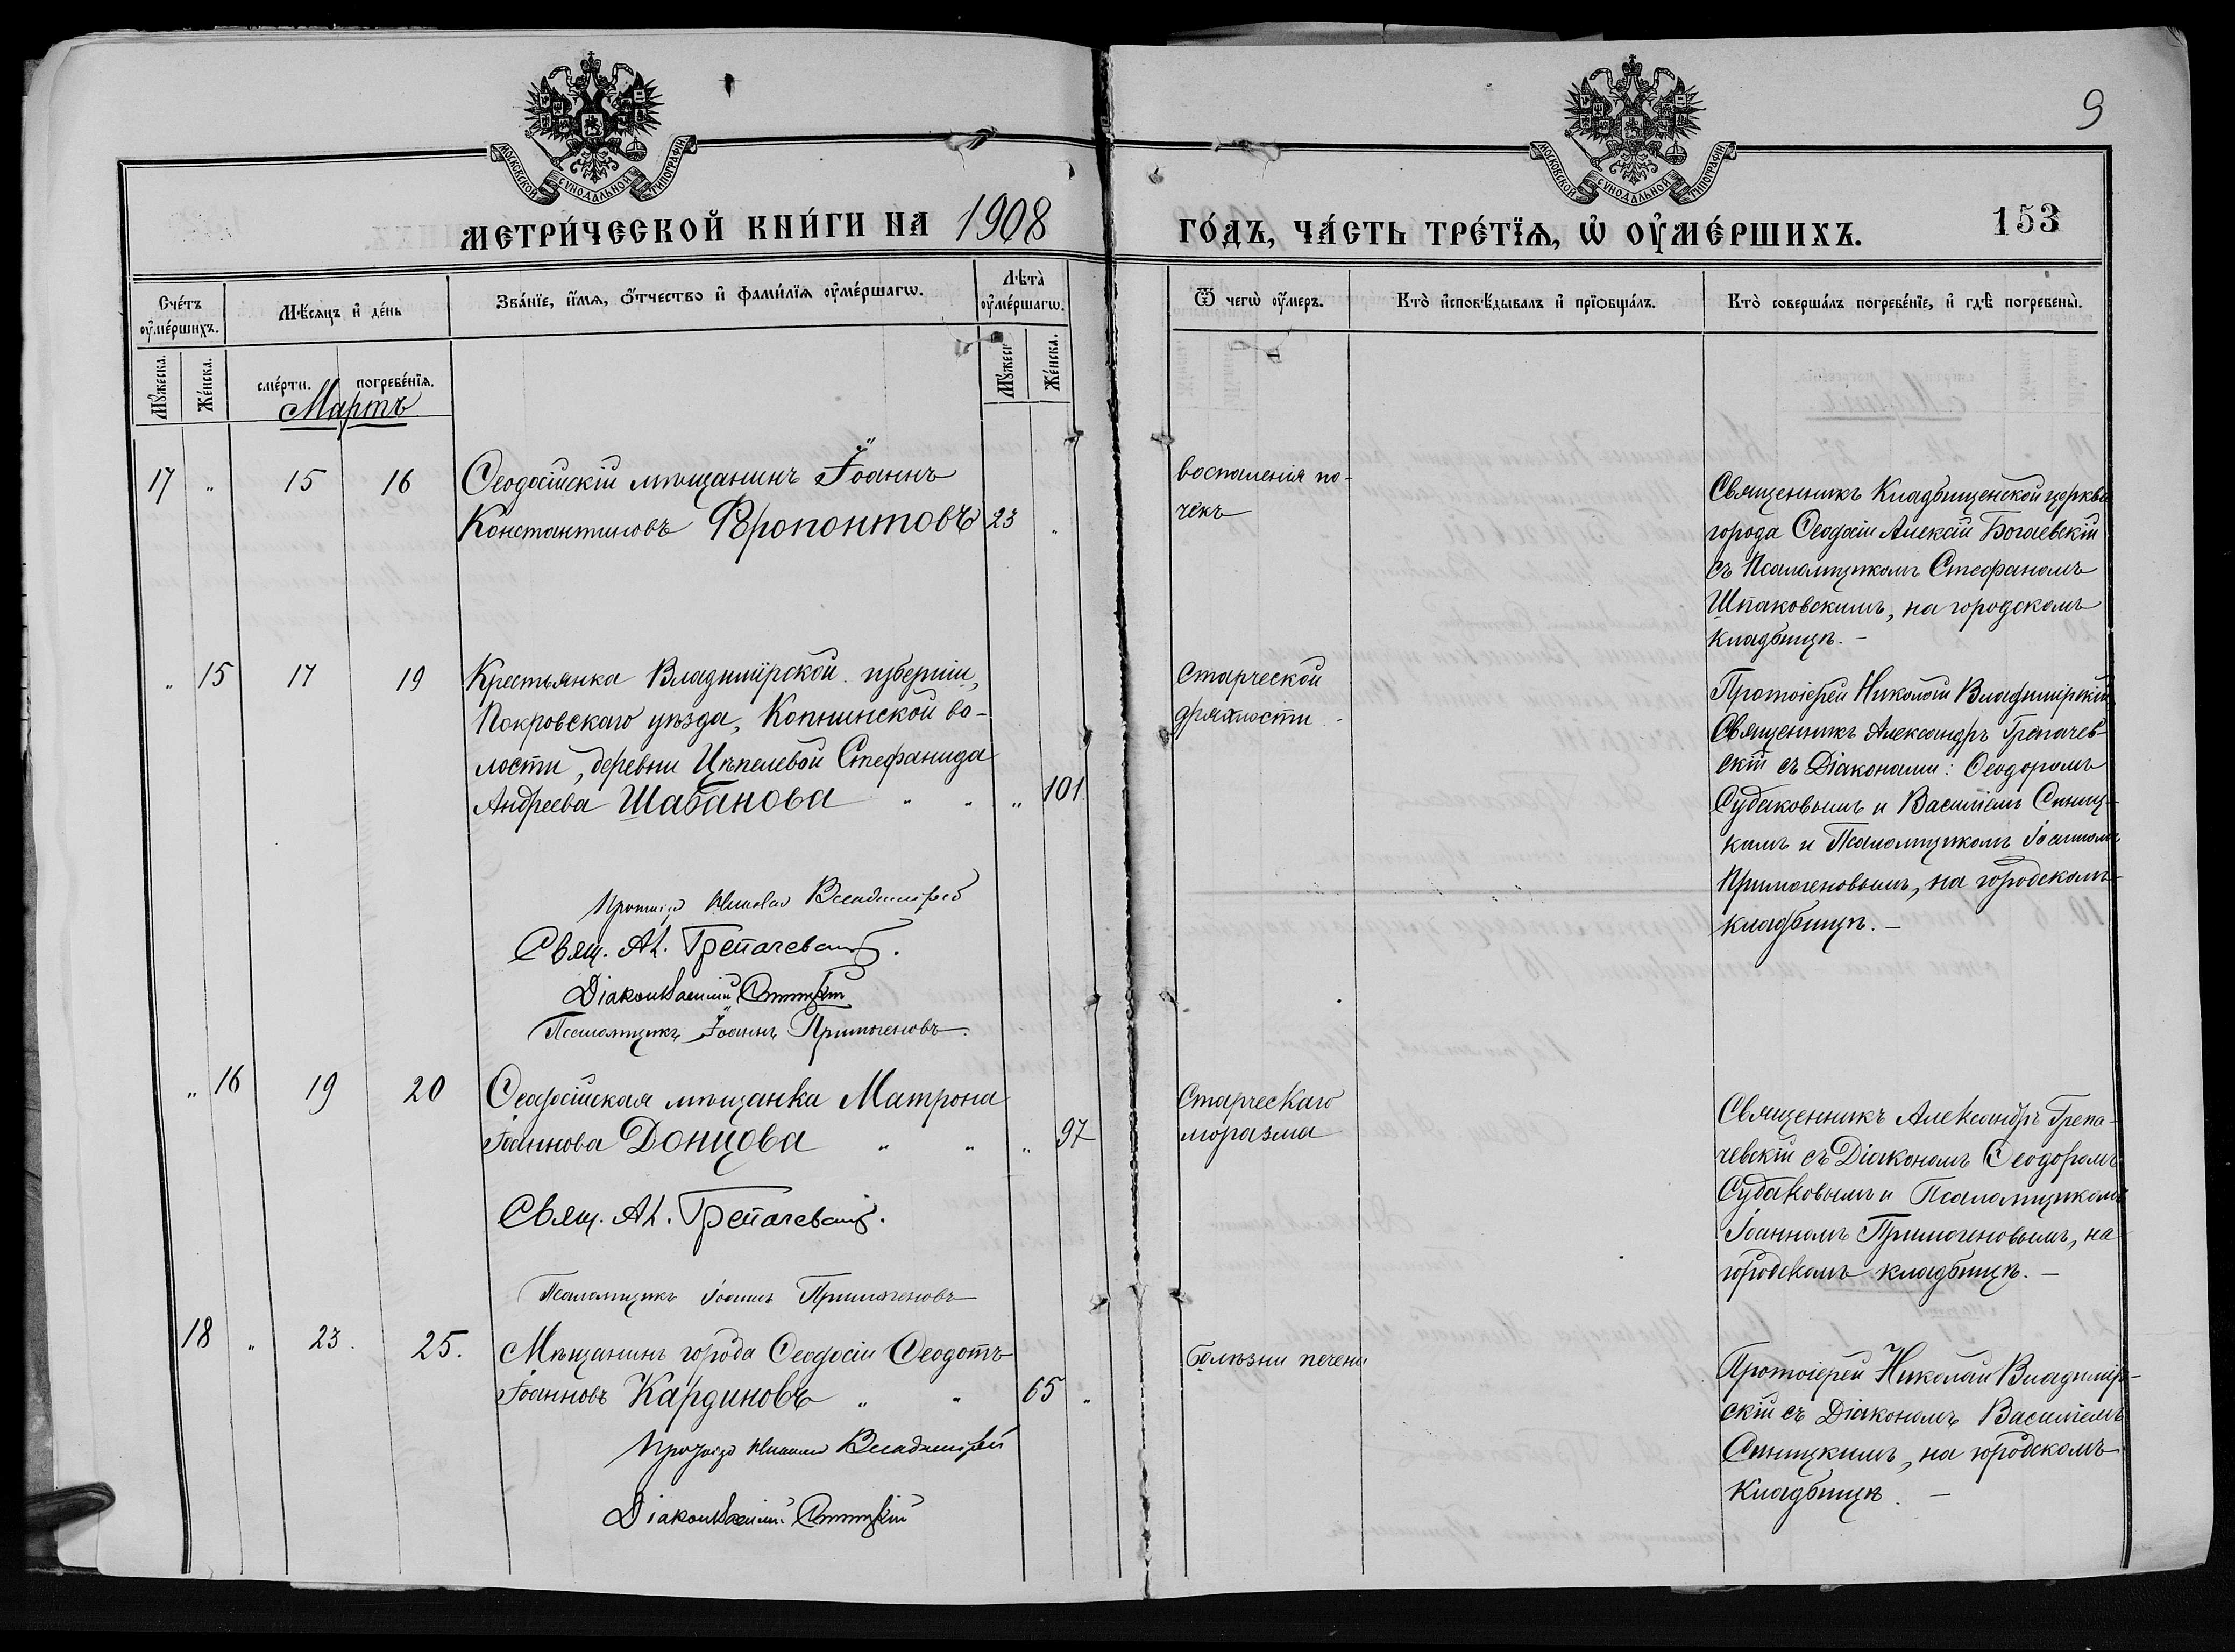 9
МОСКОВСКОЙ СУНОДАЛЬНОЙ ТИПОГРАФІИ
МОСКОВСКОЙ СУНОДАЛЬНОЙ ТИПОГРАФІИ
МЕТРИ́ЧЕСКОЙ КНИ́ГИ НА 1908 ГО́ДЪ, ЧА́СТЬ ТРЕ́ТЇѦ, Ѡ҆ ОУ҆МЕ́РШИХЪ.
153
Сче́тъ оу҆ме́ршихъ.
Мѣ́сяцъ и҆ де́нь
Зва́нїе, и҆́мѧ, ѻ҆́тчество и҆ фами́лїѧ оу҆ме́ршагѡ.
Лѣ́та оу҆ме́ршагѡ.
Ѿ чегѡ̀ оу҆́меръ.
Кто̀ и҆сповѣ́дывалъ и҆ прїѡбща́лъ.
Кто̀ соверша́лъ погребе́нїе, и҆ гдѣ̀ погребены̀.
Мꙋ́жеска.
Же́нска.
сме́рти.
погребе́нїѧ.
Мꙋ́жеск
Же́нска.
Мартъ
17 " 15 16
Ѳеодосійскій мѣщанинъ Іоаннъ
Константиновъ Фропонтовъ 23 "
воспаленія по-
чекъ
Священникъ Кладбищенской церкви
города Ѳеодосіи Алексій Богаевскій
съ Псаломщикомъ Стефаномъ
Шпаковскимъ, на городскомъ
кладбищѣ. -
" 15 17 19
Крестьянка Владимірской губерніи,
Покровскаго уѣзда, Копнинской во-
лости, деревни Цѣпелевой Стефанида
Андреева Шабанова " " " 101.
Старческой
дряхлости -
Протоіерей Николай Владимірскій
Священникъ Александръ Трепачев-
скій съ Діаконами: Ѳеодоромъ
Судаковымъ и Василіемъ Синиц-
кимъ и Псаломщикомъ Іоанномъ
Примогеновымъ, на городскомъ
кладбищѣ. -
Николай Владимірскій
Свящ. Ал. Трепачевскій.
Діаконъ Василій Синицкій
Псаломщикъ Іоаннъ Примогеновъ.
" 16 19 20
Ѳеодосійская мѣщанка Матрона
Іоаннова Донцова " " " 97
Старческаго
моразма
Священникъ Александръ Трепа-
чевскій съ Діакономъ Ѳеодоромъ
Судаковымъ и Псаломщикомъ
Іоанномъ Примогеновымъ, на
городскомъ кладбищѣ. -
Свящ. Ал. Трепачевскій.
Псаломщикъ Іоаннъ Примогеновъ
18 " 23. 25.
Мѣщанинъ города Ѳеодосіи Ѳеодотъ
Іоанновъ Кардиновъ " " 65 "
Болѣзни печени
Протоіерей Николай Владимір-
скій съ Діакономъ Василіемъ
Синицкимъ, на городскомъ
Кладбищѣ. -
Николай Владимірскій
Діаконъ Василій Синицкій